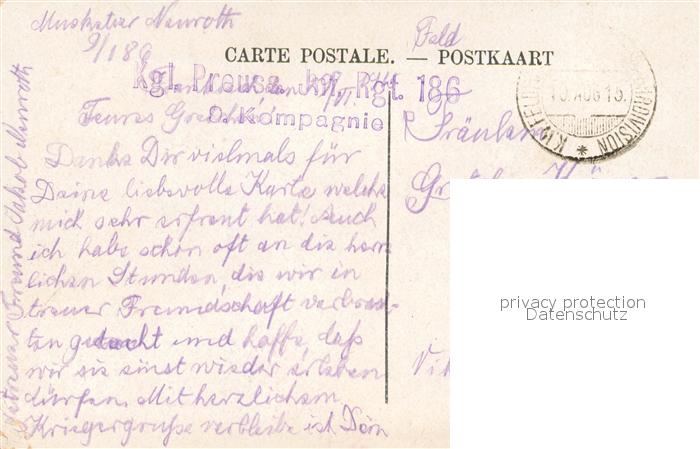 Musketier Neuroth
9/186
CARTE POSTALE. — POSTKAART
Feld
Kgl. Preuss. Inf. Rgt. 186
9. Kompagnie
Teures Gretchen!
Danke Dir vielmals für
Deine liebevolle Karte welche
mich sehr erfreut hat! Auch
ich habe schon oft an die herr-
lichen Stunden, die wir in
treuer Freundschaft verbrach-
ten gedacht und hoffe, daß
wir sie einst wieder erleben
dürfen. Mit herzlichem
Kriegergruße verbleibe ich Dein
Getreuer Freund Jakob Neuroth
Fräulein
AUG 15.
privacy protection
Datenschutz